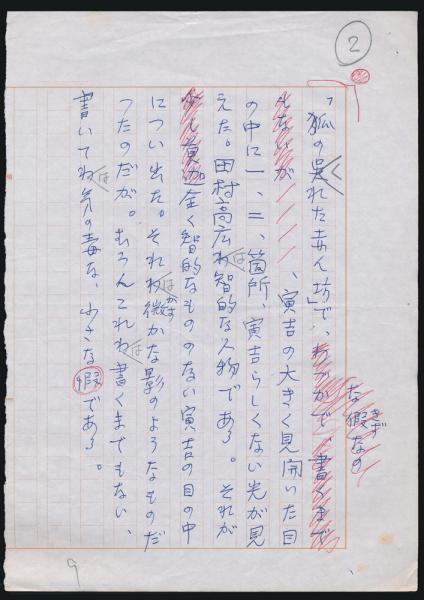 2
「狐の呉れた赤ん坊」で、わづかで、書くまで
もないが、寅吉の大きく見開いた目
の中に一、二、箇所、寅吉らしくない光が見
えた。田村高広わ智的な人物である。それが
少し負
全く智的なもののない寅吉の目の中
につい出た。それわ微かな影のようなものだ
つたのだが。むろんこれわ書くまでもない、
書いてわ気の毒な、小さな瑕である。
く
は
は
かす
は
は
な瑕なの
きず
9